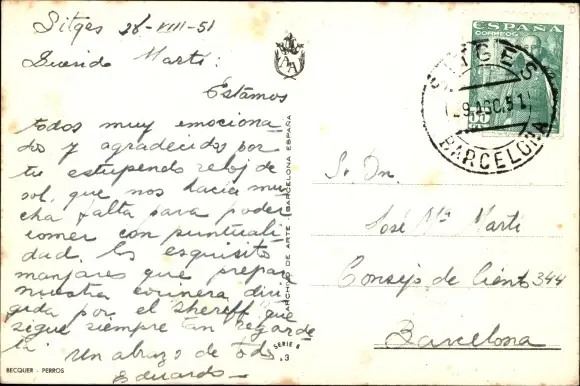 Sitges 28-VIII-51
Querido Martí:
Estamos
todos muy emociona
dos y agradecidos por
tu estupendo reloj de
sol, que nos hacía mu
cha falta para poder
comer con puntuali
dad, los exquisitos
manjares que prepara
nuestra cocinera diri
gida por el Shereff que
sigue siempre tan
Un abrazo de todos
Eduardo
BECQUER - PERROS
ARCHIVO DE ARTE BARCELONA ESPAÑA
SERIE 8
3
ESPAÑA
CORREOS
SITGES
29 AGO. 51
BARCELONA
Sr. Dn.
José Mª Martí
Consejo de Ciento 344
Barcelona